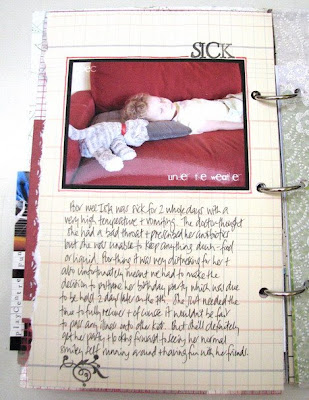 SICK
Poor wee Isla was sick for 2 whole days with a
very high temperature + vomiting. The doctor thought
she had a bad throat + prescribed her antibiotics
but she was unable to keep anything down - food
or liquid. Poor thing it was very distressing for her +
also unfortunately meant we had to make the
decision to postpone her birthday party which was due
to be held 2 days later on the 9th. She just needed the
time to fully recover + of course it wouldn't be fair
to pass any illness onto other kids. But she'll definitely
get her party + looking forward to seeing her normal
smiley self running around + having fun with her friends.